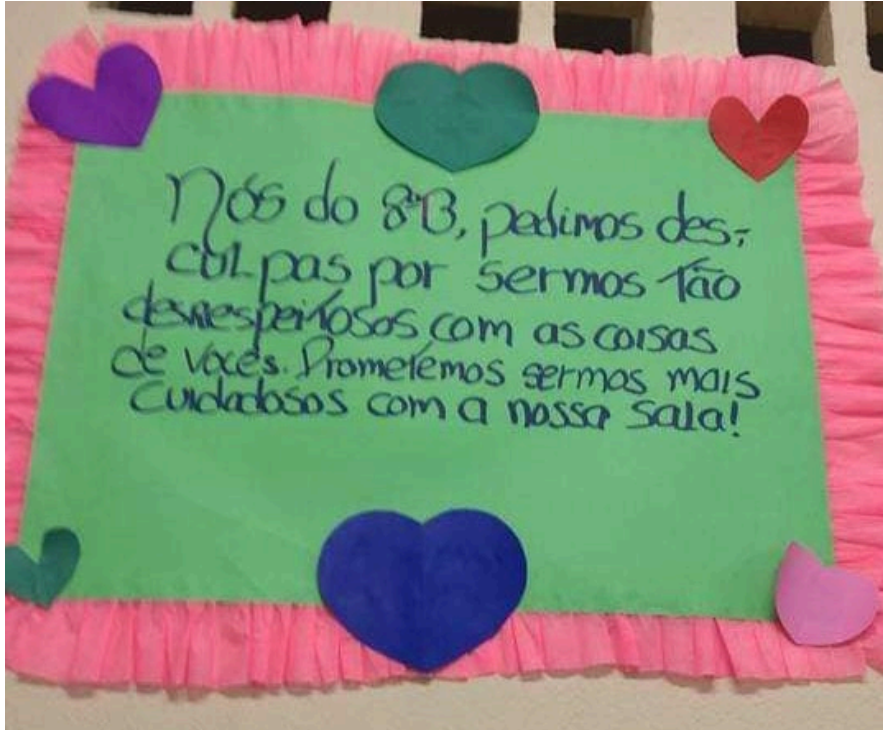 Nós do 8ºB, pedimos des-
culpas por sermos tão
desrespeitosos com as coisas
de vocês. Prometemos sermos mais
cuidadosos com a nossa sala!